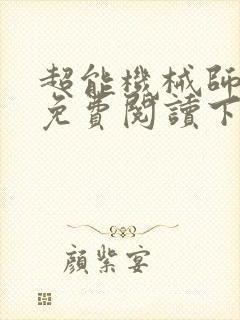 超能機械師
免費閱讀下
顏紫宴